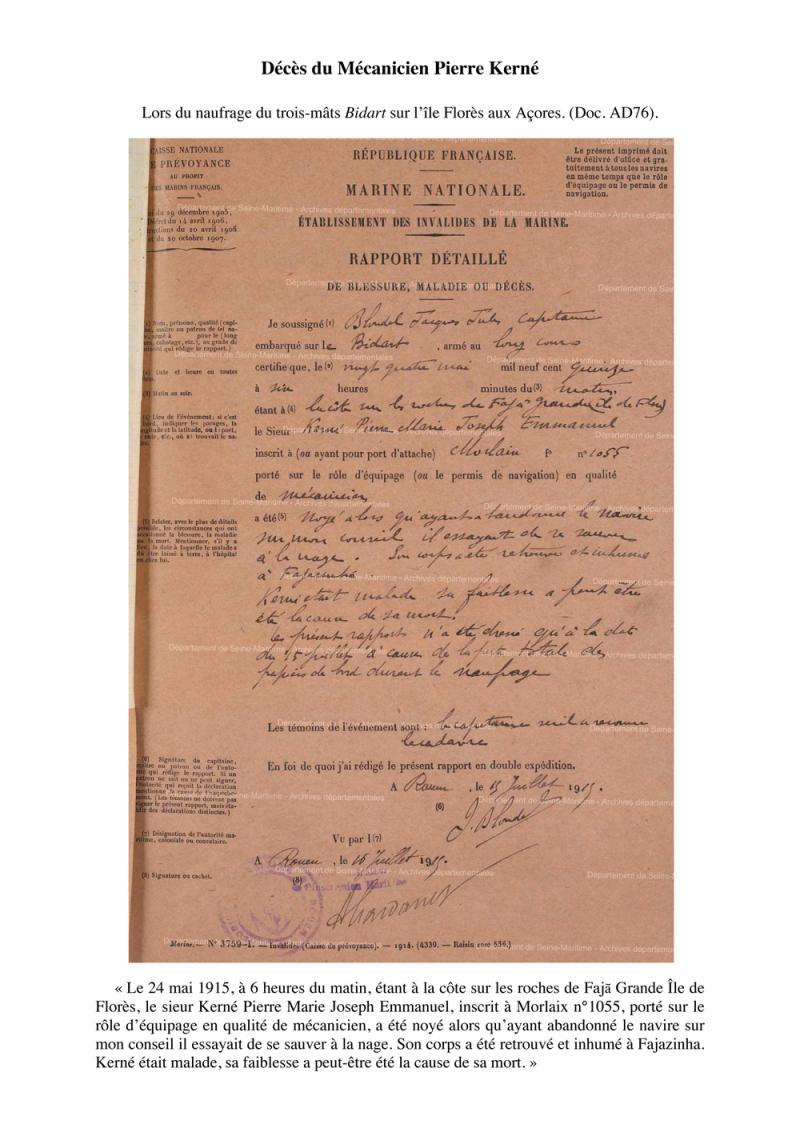 Décès du Mécanicien Pierre Kerné
Lors du naufrage du trois-mâts Bidart sur l'île Florès aux Açores. (Doc. AD76).
CAISSE NATIONALE
E PRÉVOYANCE
AU PROFIT
DES MARINS FRANÇAIS.
du 29 décembre 1905,
Décret du 14 avril 1906,
ructions du 20 avril 1906
et du 20 octobre 1907.
RÉPUBLIQUE FRANÇAISE.
MARINE NATIONALE.
ÉTABLISSEMENT DES INVALIDES DE LA MARINE.
Le présent imprimé doit
être délivré d'office et gra-
tuitement à tous les navires
en même temps que le rôle
d'équipage ou le permis de
navigation.
RAPPORT DÉTAILLÉ
DE BLESSURE, MALADIE OU DÉCÈS.
Je soussigné (1) Blondel Jacques Jules Capitaine
embarqué sur le Bidart, armé au long cours
certifie que, le (2) vingt quatre mai mil neuf cent quinze
à six heures minutes du (3) matin,
étant à (4) la côte sur les roches de Fajā grande (île de Flores)
le Sieur Kerné Pierre Marie Joseph Emmanuel
inscrit à (ou ayant pour port d'attache) Morlaix f° n° 1055
porté sur le rôle d'équipage (ou le permis de navigation) en qualité
de mécanicien
a été (5) noyé alors qu'ayant abandonné le navire
sur mon conseil il essayait de se sauver
à la nage. Son corps a été retrouvé et inhumé
à Fajazinha.
Kerné était malade sa faiblesse a peut être
été la cause de sa mort.
Le présent rapport n'a été dressé qu'à la date
du 15 juillet à cause de la perte totale des
papiers de bord durant le naufrage
(1) Nom, prénoms, qualité (capi-
taine, maître ou patron de tel na-
vire, armé à pour le (long
cours, cabotage, etc.), ou grade de
l'autorité qui rédige le rapport.)
(2) Date et heure en toutes
lettres.
(3) Matin ou soir.
(4) Lieu de l'événement; si c'est
à bord, indiquer les parages, la
longitude et la latitude, ou le port,
rade, etc., où se trouvait le na-
vire.
(5) Relater, avec le plus de détails
possible, les circonstances qui ont
occasionné la blessure, la maladie
ou la mort. Mentionner, s'il y a
lieu, la date à laquelle le malade a
dû être laissé à terre, à l'hôpital
ou chez lui.
Les témoins de l'événement sont : le capitaine seul a reconnu
le cadavre
En foi de quoi j'ai rédigé le présent rapport en double expédition.
A Rouen, le 15 Juillet 1915.
(6)
J. Blondel
Vu par l (7)
A Rouen, le 16 Juillet 1915.
(8)
(6) Signature du capitaine,
maître ou patron ou de l'auto-
rité qui rédige le rapport. Si un
patron ne sait ou ne peut signer,
l'autorité qui reçoit la déclaration
mentionne la cause de l'empêche-
ment. (Les témoins ne doivent pas
signer le présent rapport, mais éta-
blir des déclarations distinctes.)
(7) Désignation de l'autorité ma-
ritime, coloniale ou consulaire.
(8) Signature ou cachet.
Marine. — N° 3759-1. — Invalides (Caisse de prévoyance). — 1914. (4339. — Raisin rose 536.)
Département de Seine-Maritime - Archives départementales
« Le 24 mai 1915, à 6 heures du matin, étant à la côte sur les roches de Fajā Grande Île de
Florès, le sieur Kerné Pierre Marie Joseph Emmanuel, inscrit à Morlaix n°1055, porté sur le
rôle d'équipage en qualité de mécanicien, a été noyé alors qu'ayant abandonné le navire sur
mon conseil il essayait de se sauver à la nage. Son corps a été retrouvé et inhumé à Fajazinha.
Kerné était malade, sa faiblesse a peut-être été la cause de sa mort. »